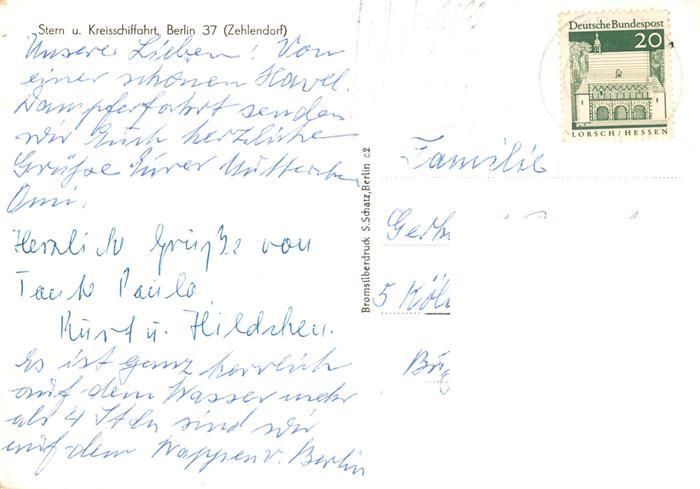 Stern u. Kreisschiffahrt, Berlin 37 (Zehlendorf)
Unsere Lieben! Von
einer schönen Havel-
Dampferfahrt senden
wir Euch herzliche
Grüße Eurer Mutter
Omi.
Herzlich Grüße von
Tante Paula
Kurt u. Hildchen.
Es ist ganz herrlich
auf dem Wasser mehr
als 4 Stdn sind wir
auf dem Wappen v. Berlin
Bromsilberdruck S.Schatz, Berlin c2
Deutsche Bundespost
20
LORSCH/HESSEN
Familie
Gerh
5 Köln